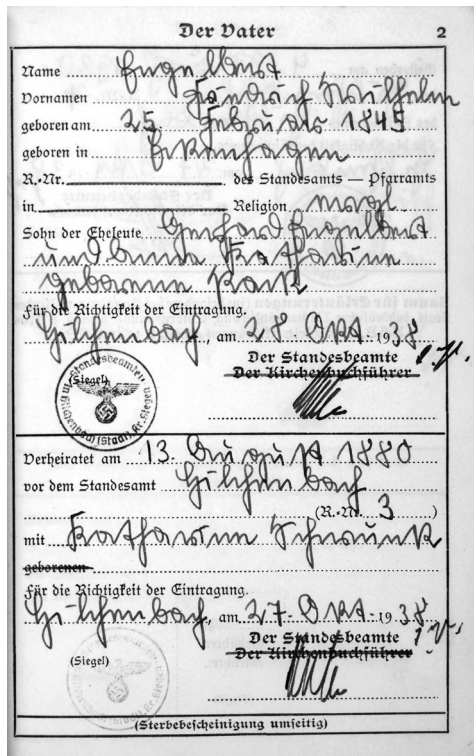 Der Vater 2
Name Engelbert
Vornamen Friedrich Wilhelm
geboren am 25. Februar 1845
geboren in Erkenhagen
R.-Nr. des Standesamts — Pfarramts
in Religion evgl.
Sohn der Eheleute Gerhard Engelbert
und Katharine
geborene
Für die Richtigkeit der Eintragung.
Hilchenbach, am 28. Okt. 1938
Der Standesbeamte
Der Kirchenbuchführer
(Siegel)
Verheiratet am 13. August 1880
vor dem Standesamt Hilchenbach
(R.-Nr. 3)
mit Katharine Schrunk
geborenen
Für die Richtigkeit der Eintragung.
Hilchenbach, am 27. Okt. 1938
Der Standesbeamte
Der Kirchenbuchführer
(Siegel)
(Sterbebescheinigung umseitig)